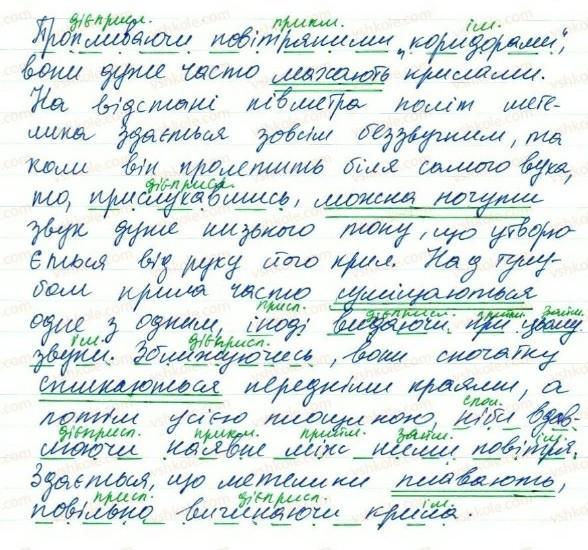 дієприсл. прикм. ім.
Пропливаючи повітряними „коридорами",
вони дуже часто махають крилами.
На відстані півметра політ мете-
лика здається зовсім беззвучним, та
коли він пролетить біля самого вуха,
дієприсл.
то, прислухавшись, можна почути
звук дуже низького тону, що утворю-
ється від руху його крил. Над тулу-
бом крила часто
присл. дієприсл. прийм. займ.
одне з одним, іноді видаючи при цьому
ім. дієприсл.
звуки. Зближуючись, вони спочатку
стикаються передніми краями, а
спол.
потім усією площиною, ніби вдав-
дієприсл. прикм. прийм. займ. ім.
люючи наявне між ними повітря.
Здається, що метелики плавають,
присл. дієприсл. ім.
повільно вигинаючи крила.